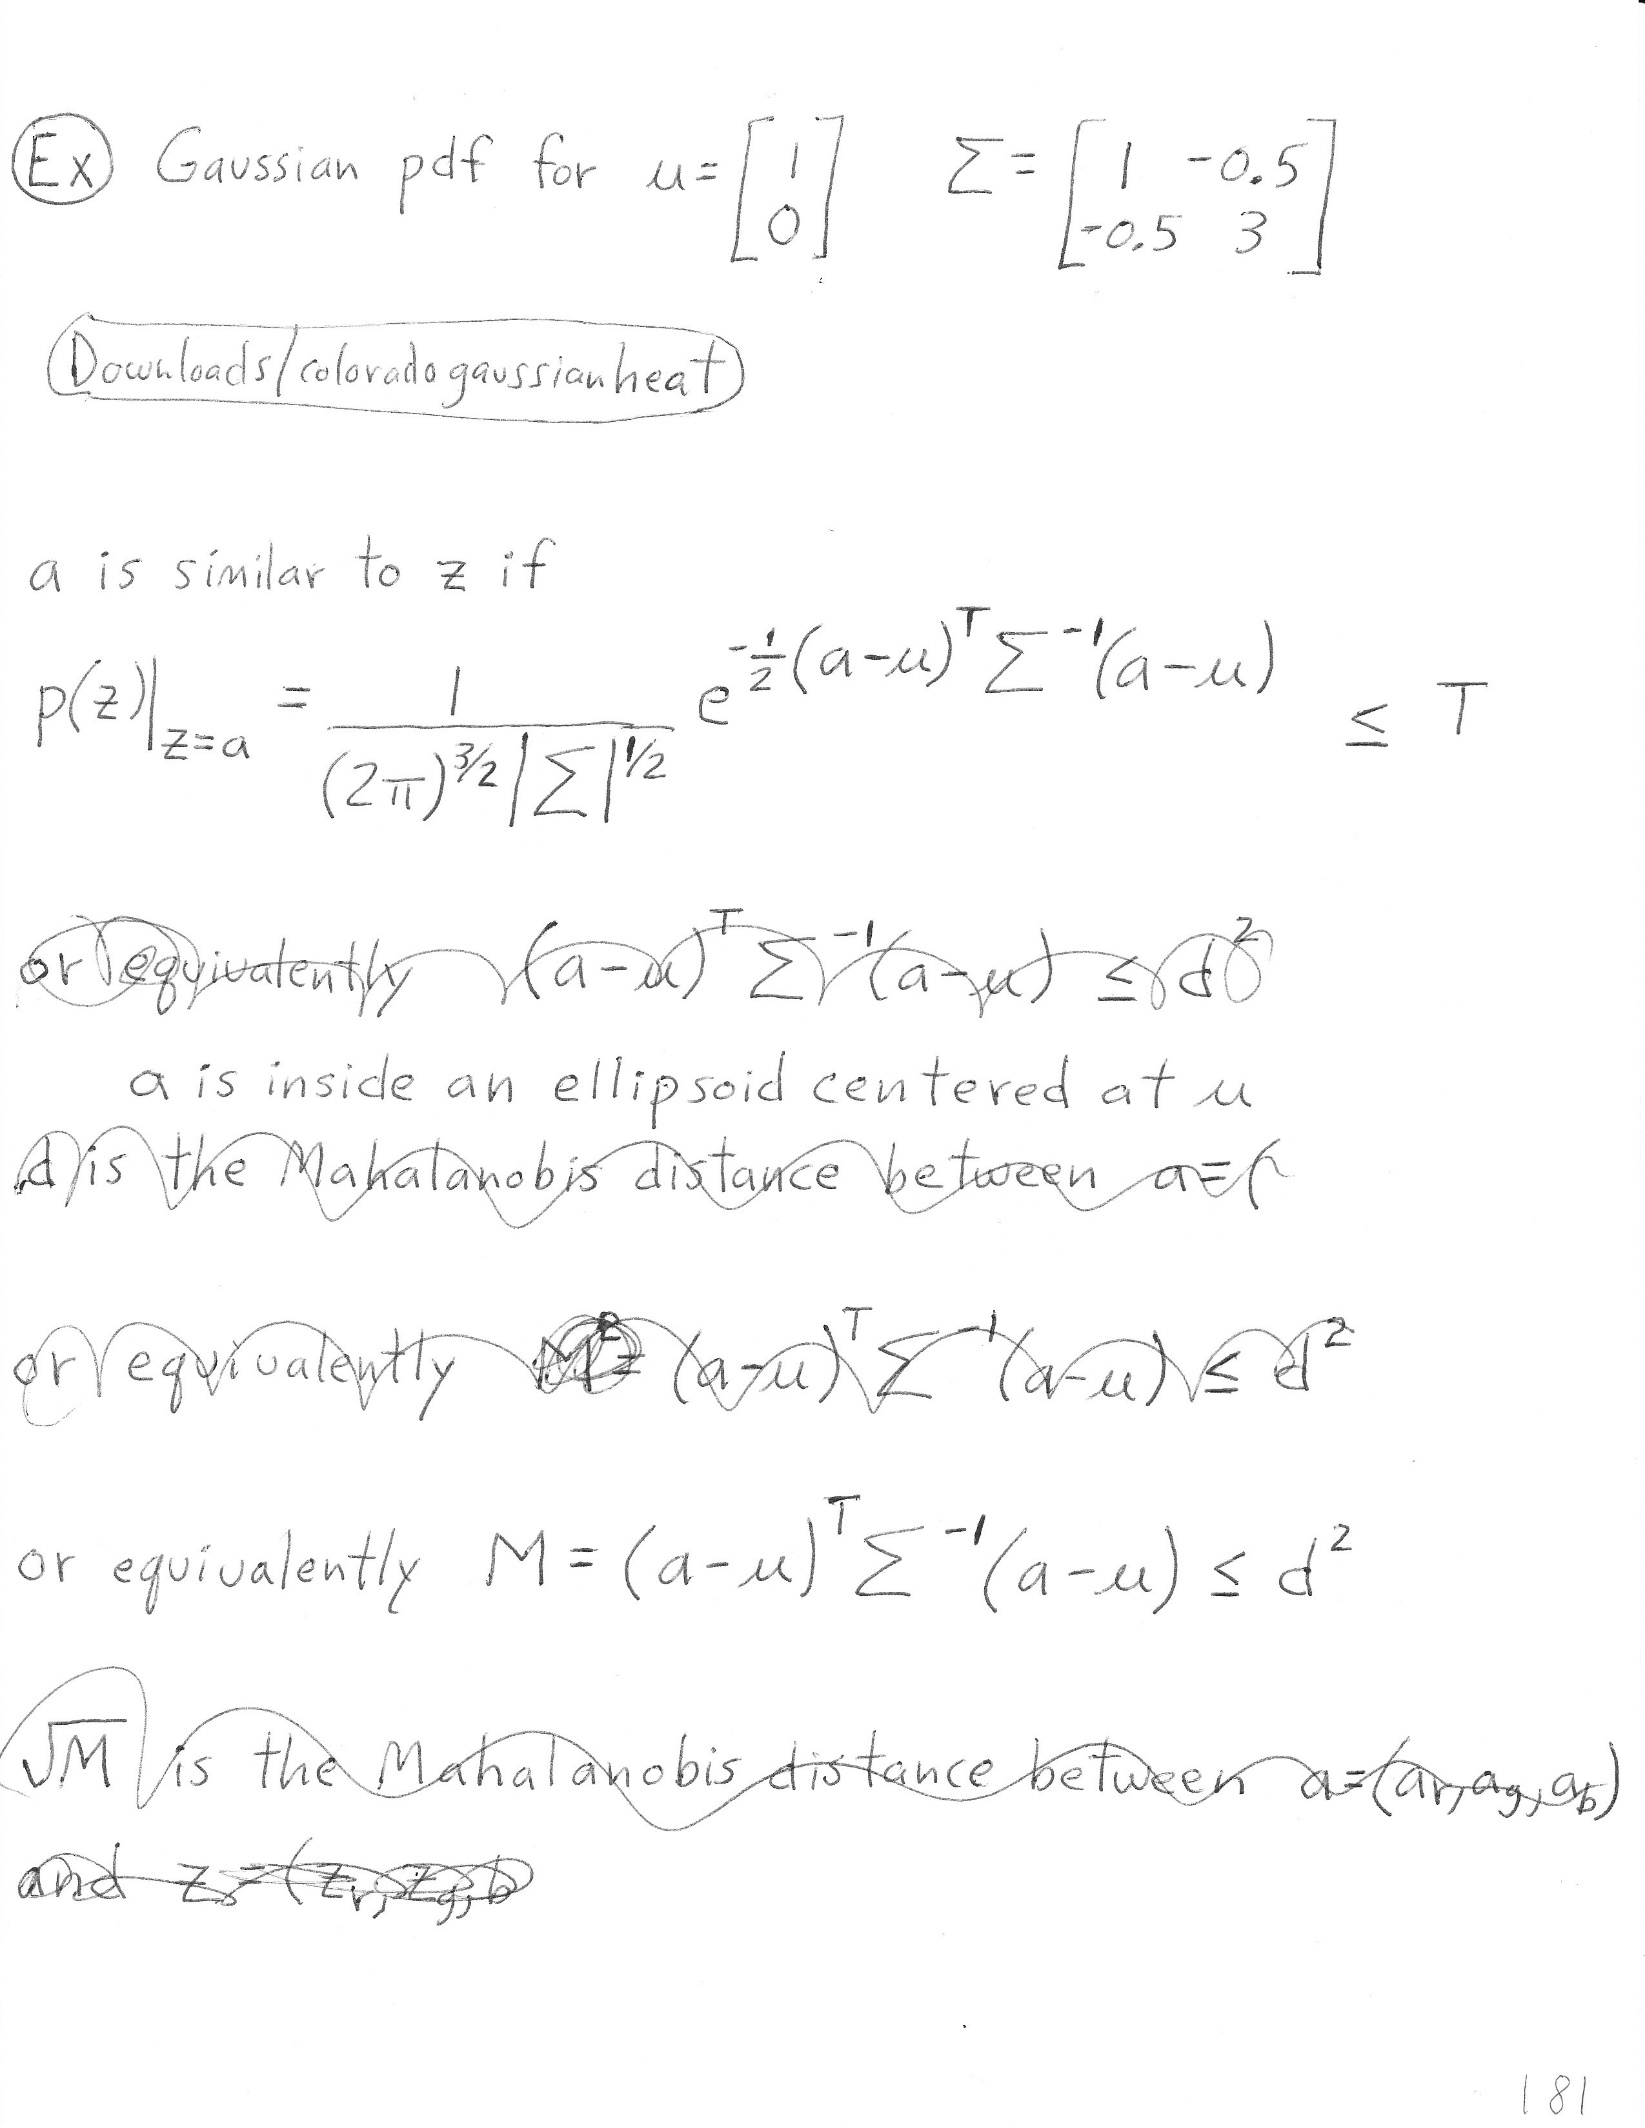 Ex Gaussian pdf for μ = [1 0] Σ = [1 -0.5 -0.5 3]
Downloads/coloradogaussianheat
a is similar to z if
p(z)|z=a = 1/((2π)^3/2 |Σ|^1/2) e^-1/2(a-μ)^T Σ^-1(a-μ) ≤ T
or equivalently (a-μ)^T Σ^-1(a-μ) ≤ d^2
a is inside an ellipsoid centered at μ
d is the Mahalanobis distance between a=(
or equivalently M^2= (a-μ)^T Σ^-1(a-μ) ≤ d^2
or equivalently M = (a-μ)^T Σ^-1(a-μ) ≤ d^2
√M is the Mahalanobis distance between a=(ar,ag,ab)
and z=(zr,zg,b
181